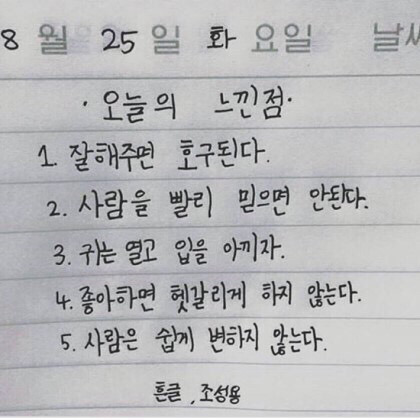 8월 25일 화요일 날씨
·오늘의 느낀점·
1. 잘해주면 호구된다.
2. 사람을 빨리 믿으면 안된다.
3. 귀는 열고 입을 아끼자.
4. 좋아하면 헷갈리게 하지 않는다.
5. 사람은 쉽게 변하지 않는다.
흔글, 조성용